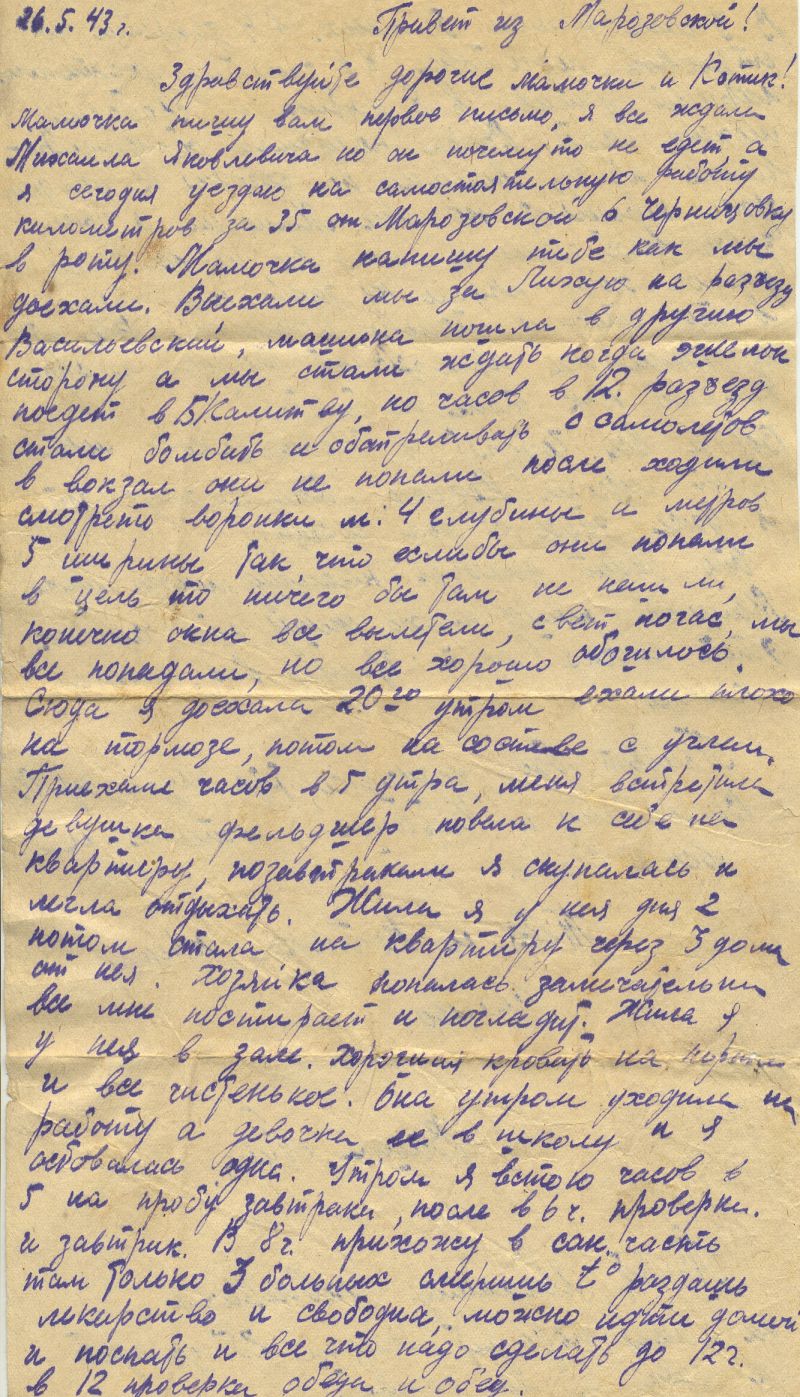 26.5.43 г. Привет из Марозовской!
Здравствуйте дорогие мамочка и Котик!
Мамочка пишу вам первое письмо, я все ждала
Михаила Яковлевича но он почемуто не едет а
я сегодня уезжаю на самостоятельную работу
километров за 35 от Марозовской в Чернышовку
в роту. Мамочка напишу тебе как мы
доехали. Выехали мы за Лихую на разъезд
Васильевский, машина пошла в другую
сторону а мы стали ждать когда эшелон
поедет в Б Калитву, но часов в 12. разъезд
стали бомбить и обстреливать с самолетов
в вокзал они не попали после ходили
смотреть воронки м. 4 глубины и метров
5 ширины так что если бы они попали
в цель то ничего бы там не нашли,
конечно окна все вылетели, свет погас, мы
все попадали, но все хорошо обошлось.
Сюда я доехала 20го утром ехали плохо
на тормозе, потом на составе с углем.
Приехали часов в 5 утра, меня встретила
девушка фельдшер повела к себе на
квартиру, позавтракали я скупалась и
легла отдыхать. Жила я у нея дня 2
потом стала на квартиру через 3 дома
от нея. Хозяйка попалась замечательная
все мне постирает и погладит. Жила я
у нея в зале. хорошая кровать на
и все чистенькое. Она утром уходила на
работу а девочка ее в школу и я
оставалась одна. Утром я встаю часов в
5 на пробу завтрака, после в 6 ч. проверка.
и завтрак. В 8 г. прихожу в сан. часть
там только 3 больных смеришь t° раздашь
лекарство и свободна, можно идти домой
и поспать и все что надо сделать до 12 г.
в 12 проверка обеда и обед.